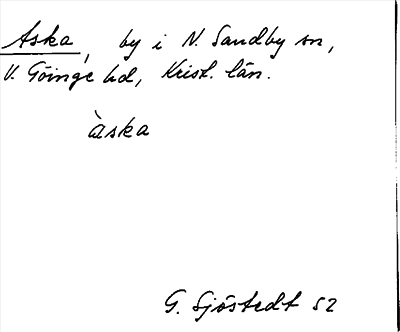 Aska, by i N. Sandby sn,
V. Göinge hd, Krist. län.
àska
G. Sjöstedt 52